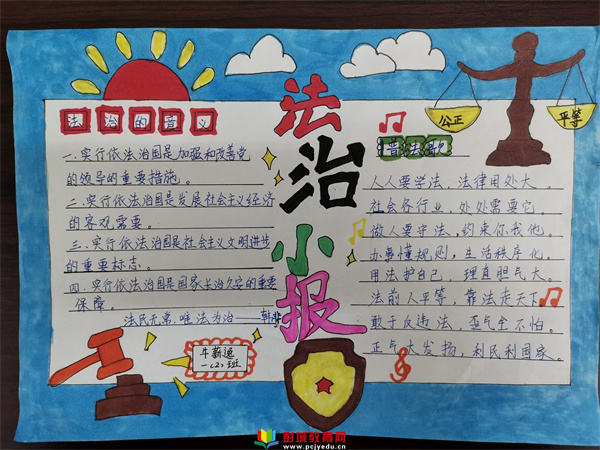 法治小报
法治的意义
一.实行依法治国是加强和改善党
的领导的重要措施。
二.实行依法治国是发展社会主义经济
的客观需要。
三.实行依法治国是社会主义文明进步
的重要标志。
四.实行依法治国是国家长治久安的重要
保障。
法民无常,唯法为治——韩非
牛薪迪
一(2)班
公正
平等
普法歌
人人要学法,法律用处大。
社会各行业,处处需要它。
做人要守法,约束你我他。
办事懂规则,生活秩序化。
用法护自己,理直胆气大。
法前人平等,靠法走天下
敢于反违法,歪气全不怕。
正气大发扬,利民利国家。
彭城教育网
www.pcjyedu.cn